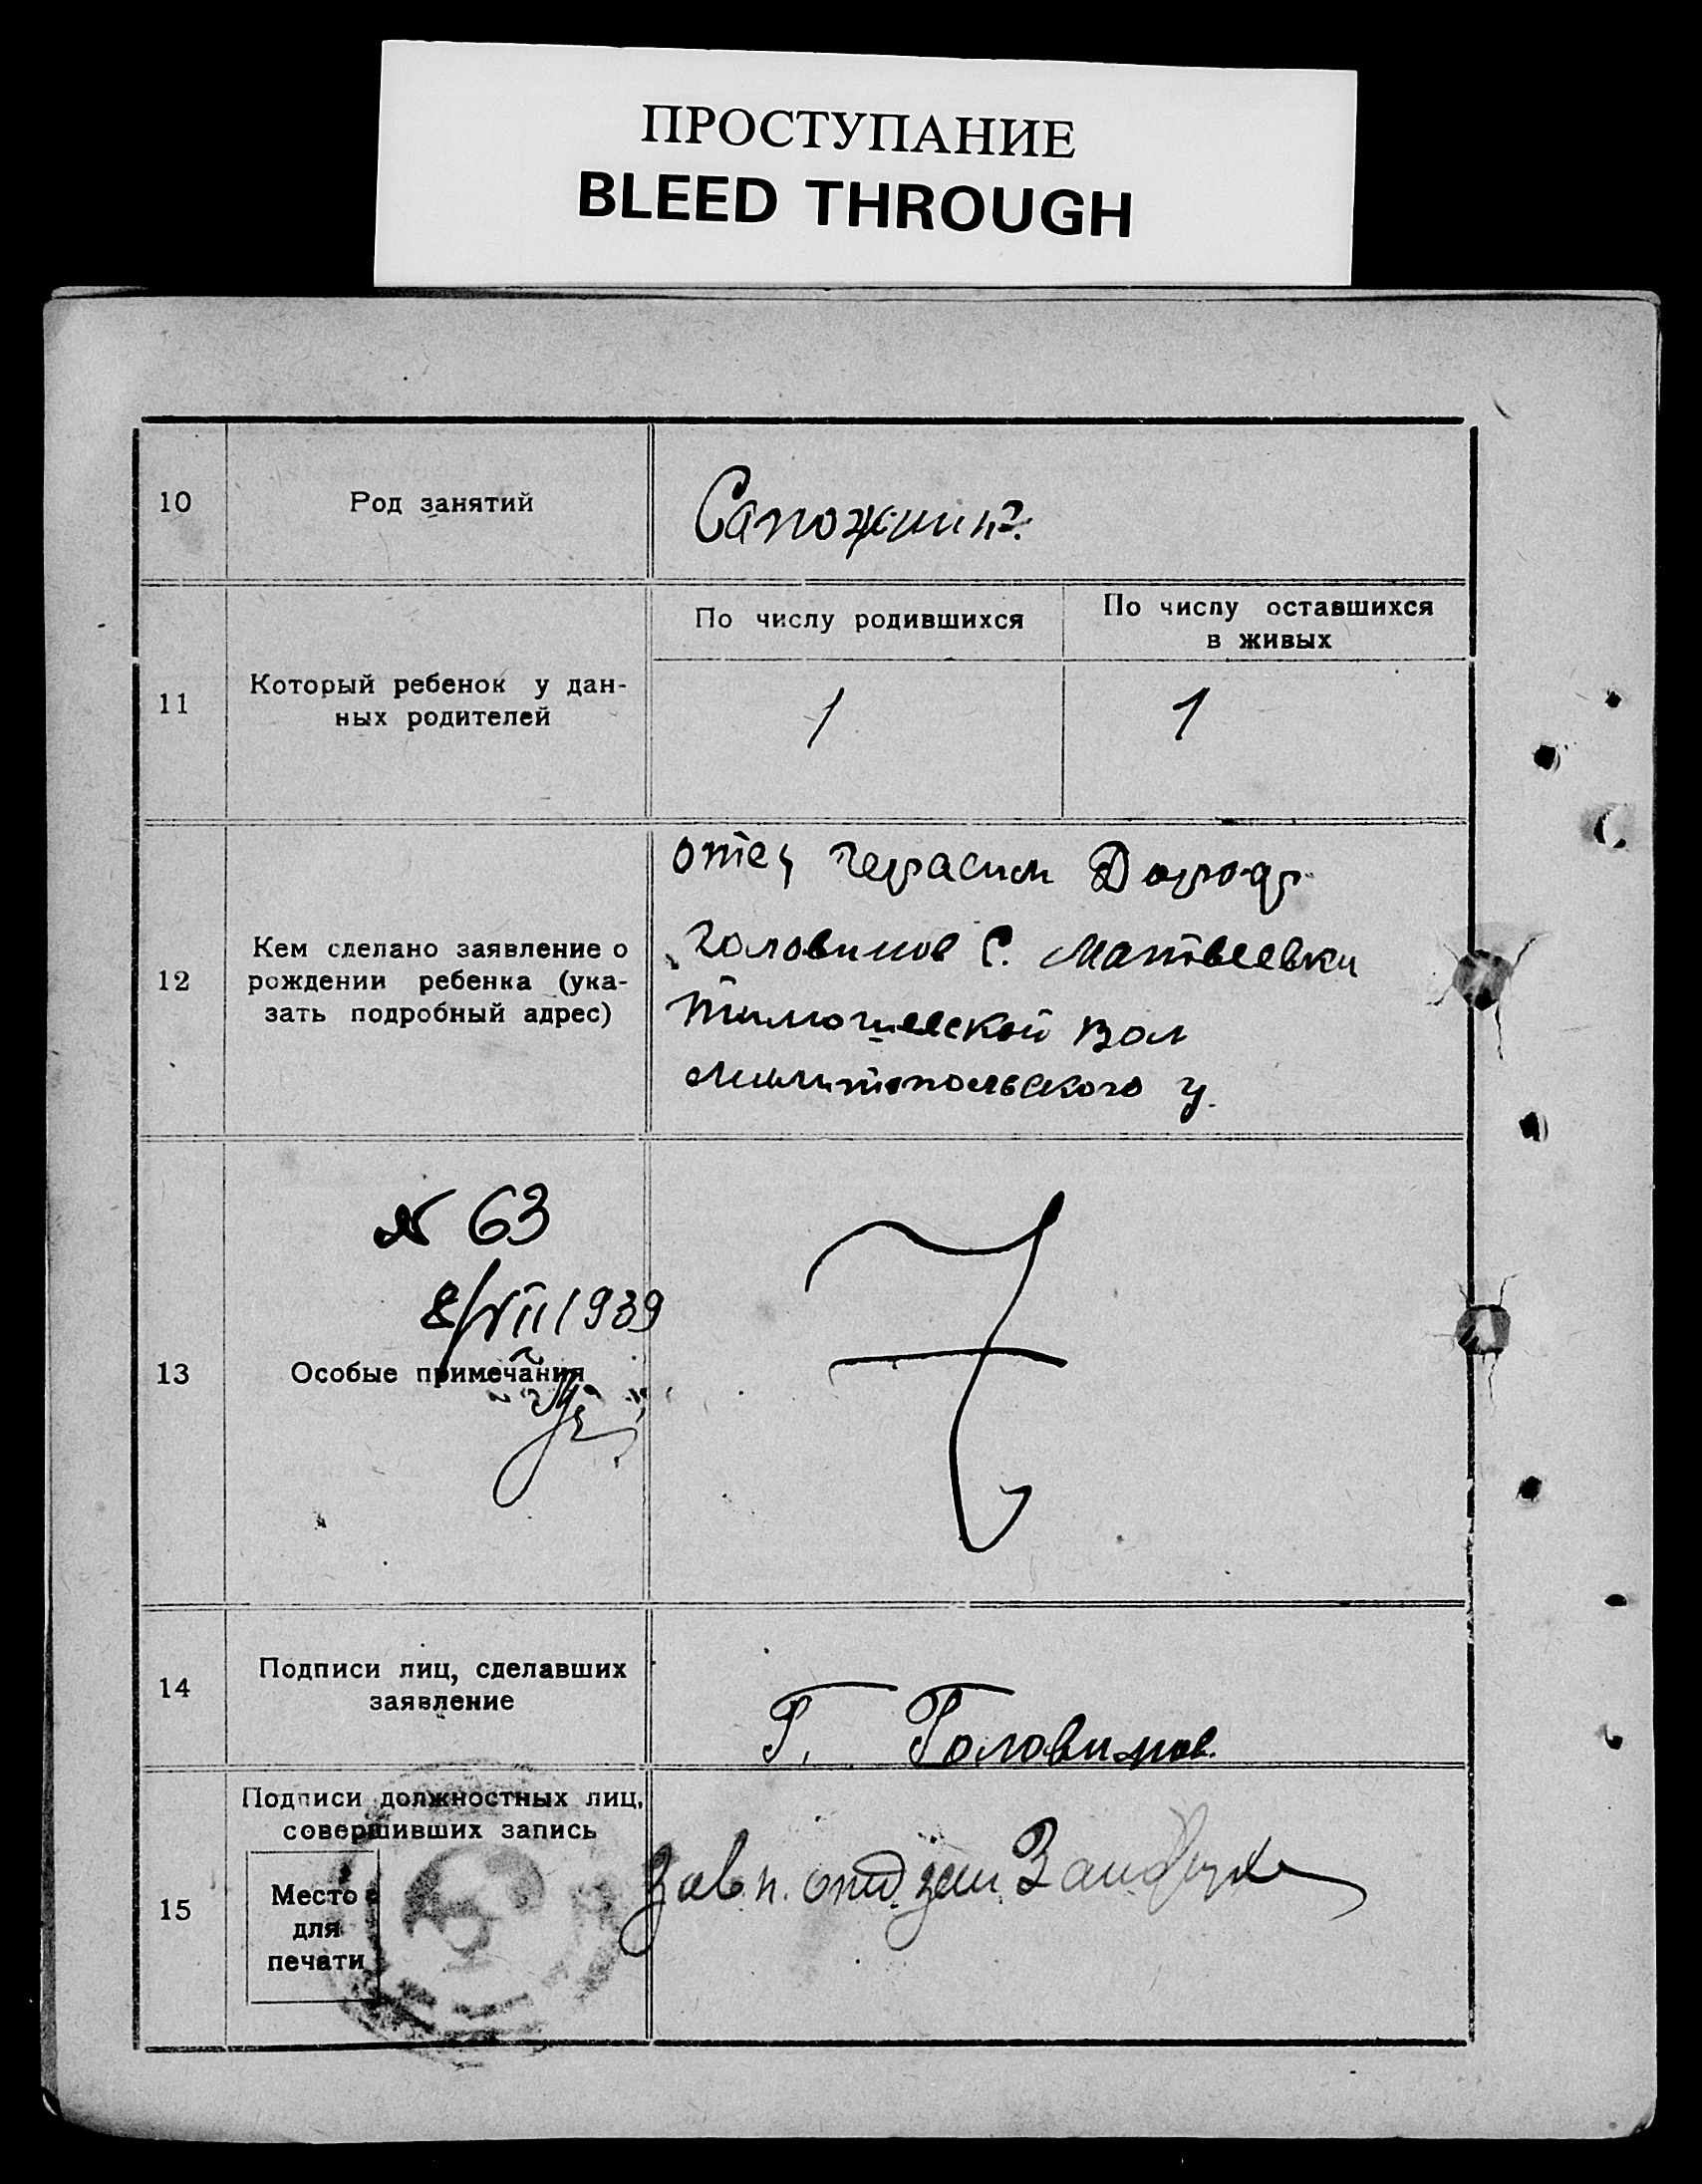 ПРОСТУПАНИЕ
BLEED THROUGH
10
Род занятий
Сапожник.
11
Который ребенок у дан-
ных родителей
По числу родившихся
По числу оставшихся
в живых
1
1
12
Кем сделано заявление о
рождении ребенка (ука-
зать подробный адрес)
отец Герасим
Головинов С. Матвеевки
Тимошевской вол
у.
№ 63
8/VII 1939
13
Особые примечания
14
Подписи лиц, сделавших
заявление
Г. Головинов.
15
Подписи должностных лиц,
совершивших запись
Место
для
печати
Зав. п.